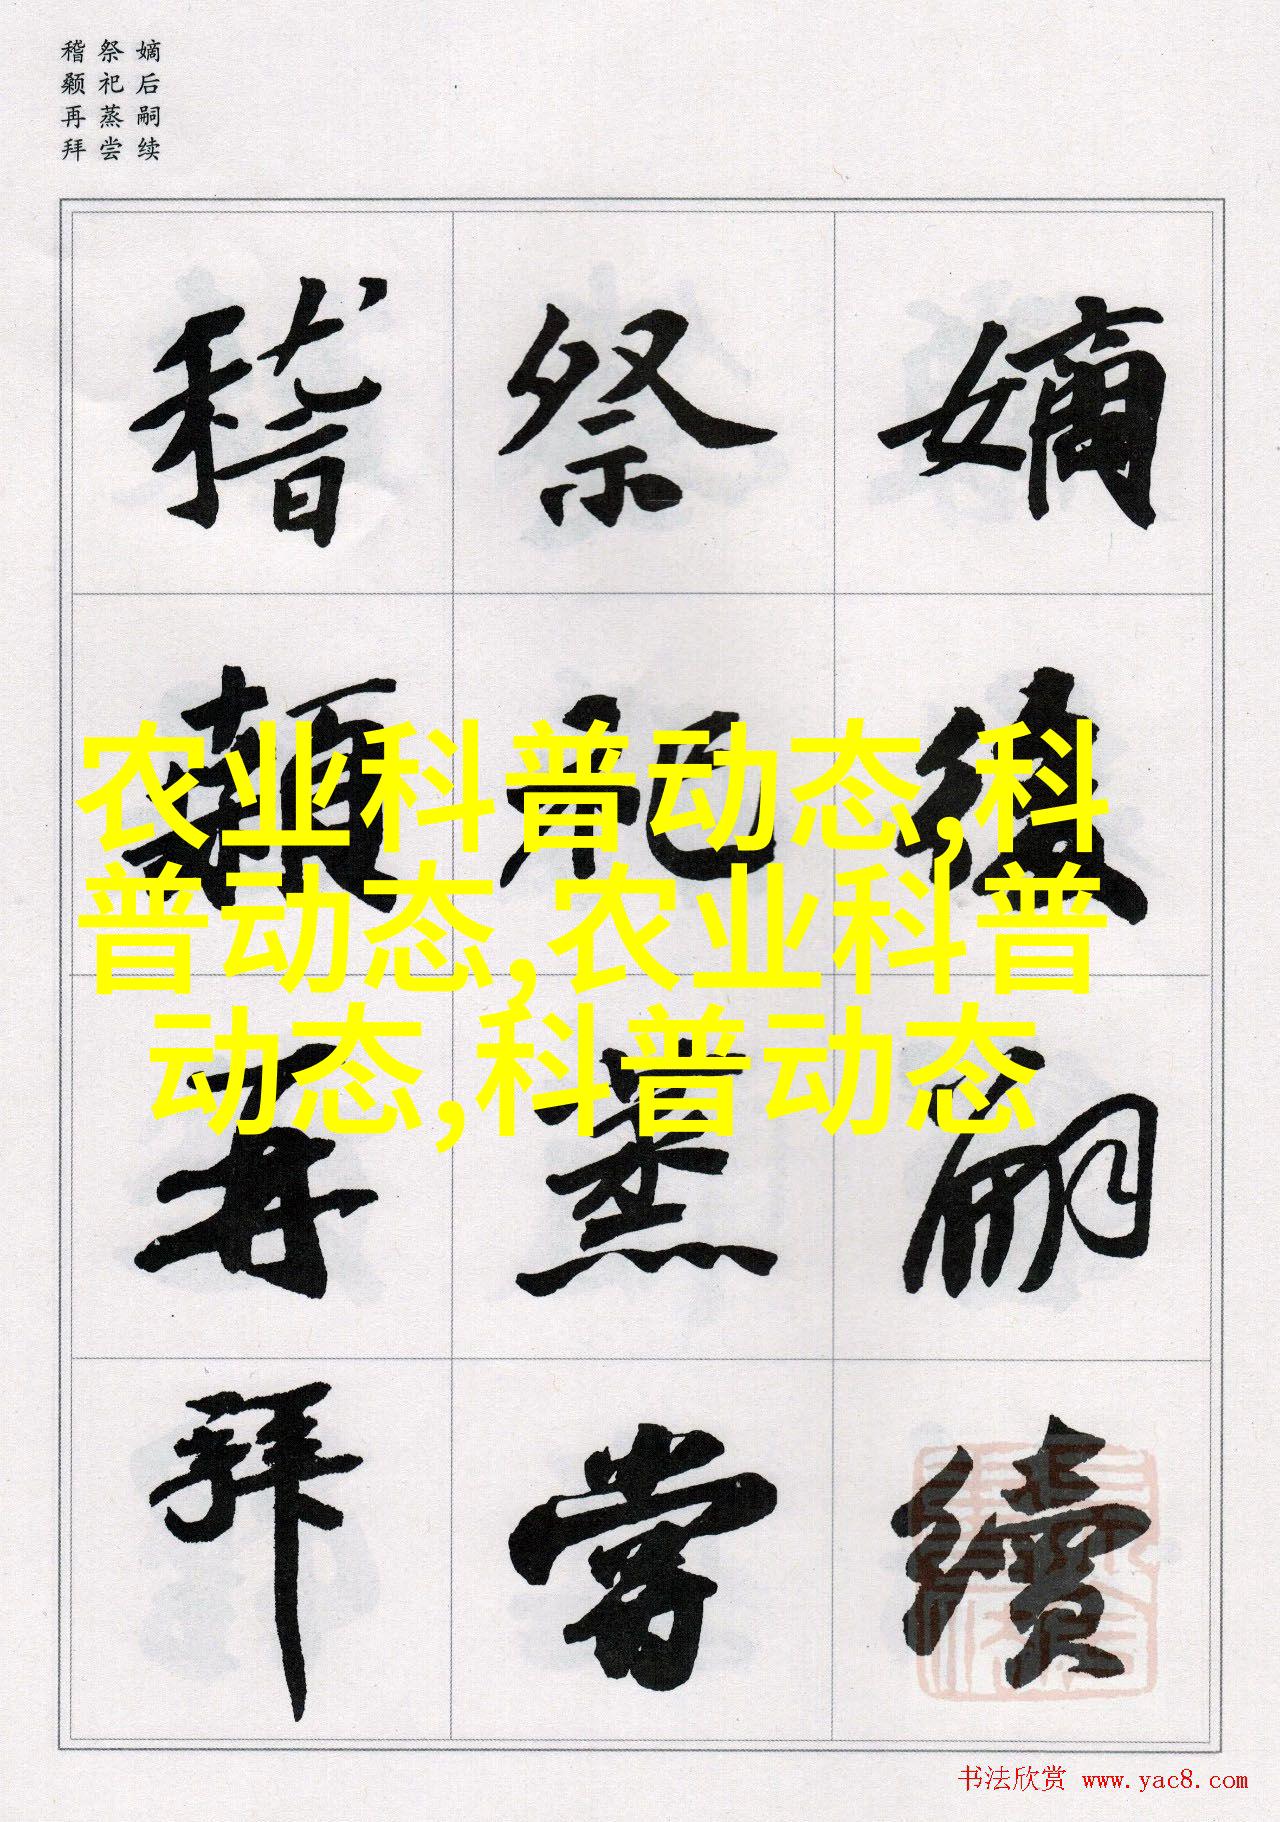 嫡后嗣续
祭祀蒸尝
稽颡再拜
嫡後嗣續
祭祀蒸嘗
稽顙再拜
农业科普动态,科
普动态,农业科普
动态,科普动态
书法欣赏 www.yac8.com